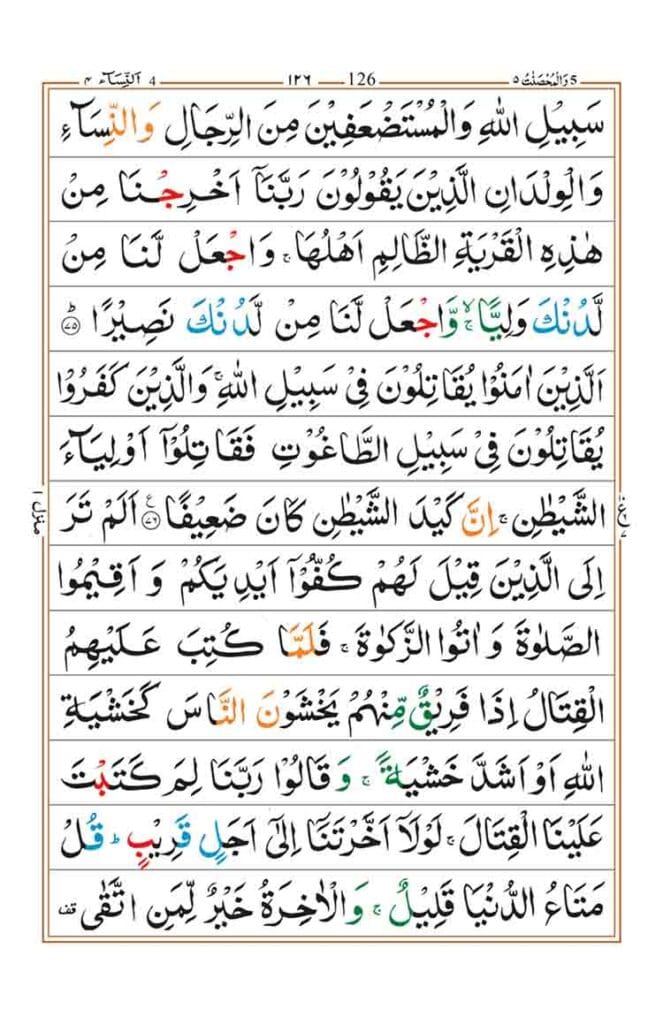 وَالْمُحْصَنٰتُ ٥ 5 126 ١٢٦ 4 اَلنِّسَآء ٤
سَبِيْلِ اللّٰهِ وَالْمُسْتَضْعَفِيْنَ مِنَ الرِّجَالِ وَالنِّسَآءِ
وَالْوِلْدَانِ الَّذِيْنَ يَقُوْلُوْنَ رَبَّنَاۤ اَخْرِجْنَا مِنْ
هٰذِهِ الْقَرْيَةِ الظَّالِمِ اَهْلُهَا ۚ وَاجْعَلْ لَّنَا مِنْ
لَّدُنْكَ وَلِيًّا ۙۚ وَّاجْعَلْ لَّنَا مِنْ لَّدُنْكَ نَصِيْرًا ؕ ٧٥
اَلَّذِيْنَ اٰمَنُوْا يُقَاتِلُوْنَ فِيْ سَبِيْلِ اللّٰهِ ۚ وَالَّذِيْنَ كَفَرُوْا
يُقَاتِلُوْنَ فِيْ سَبِيْلِ الطَّاغُوْتِ فَقَاتِلُوْۤا اَوْلِيَآءَ
الشَّيْطٰنِ ۚ اِنَّ كَيْدَ الشَّيْطٰنِ كَانَ ضَعِيْفًا ع ٧٦ اَلَمْ تَرَ
اِلَى الَّذِيْنَ قِيْلَ لَهُمْ كُفُّوْۤا اَيْدِيَكُمْ وَاَقِيْمُوا
الصَّلٰوةَ وَاٰتُوا الزَّكٰوةَ ۚ فَلَمَّا كُتِبَ عَلَيْهِمُ
الْقِتَالُ اِذَا فَرِيْقٌ مِّنْهُمْ يَخْشَوْنَ النَّاسَ كَخَشْيَةِ
اللّٰهِ اَوْ اَشَدَّ خَشْيَةً ۚ وَقَالُوْا رَبَّنَا لِمَ كَتَبْتَ
عَلَيْنَا الْقِتَالَ ۚ لَوْلَاۤ اَخَّرْتَنَاۤ اِلٰۤى اَجَلٍ قَرِيْبٍ ؕ قُلْ
مَتَاعُ الدُّنْيَا قَلِيْلٌ ۚ وَالْاٰخِرَةُ خَيْرٌ لِّمَنِ اتَّقٰى قف
منزل ١